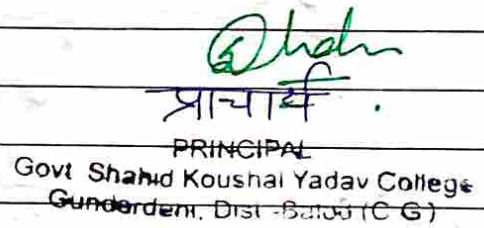 प्राचार्य
PRINCIPAL
Govt Shahid Koushal Yadav College
Gunderdehi, Dist -Balod (C G)